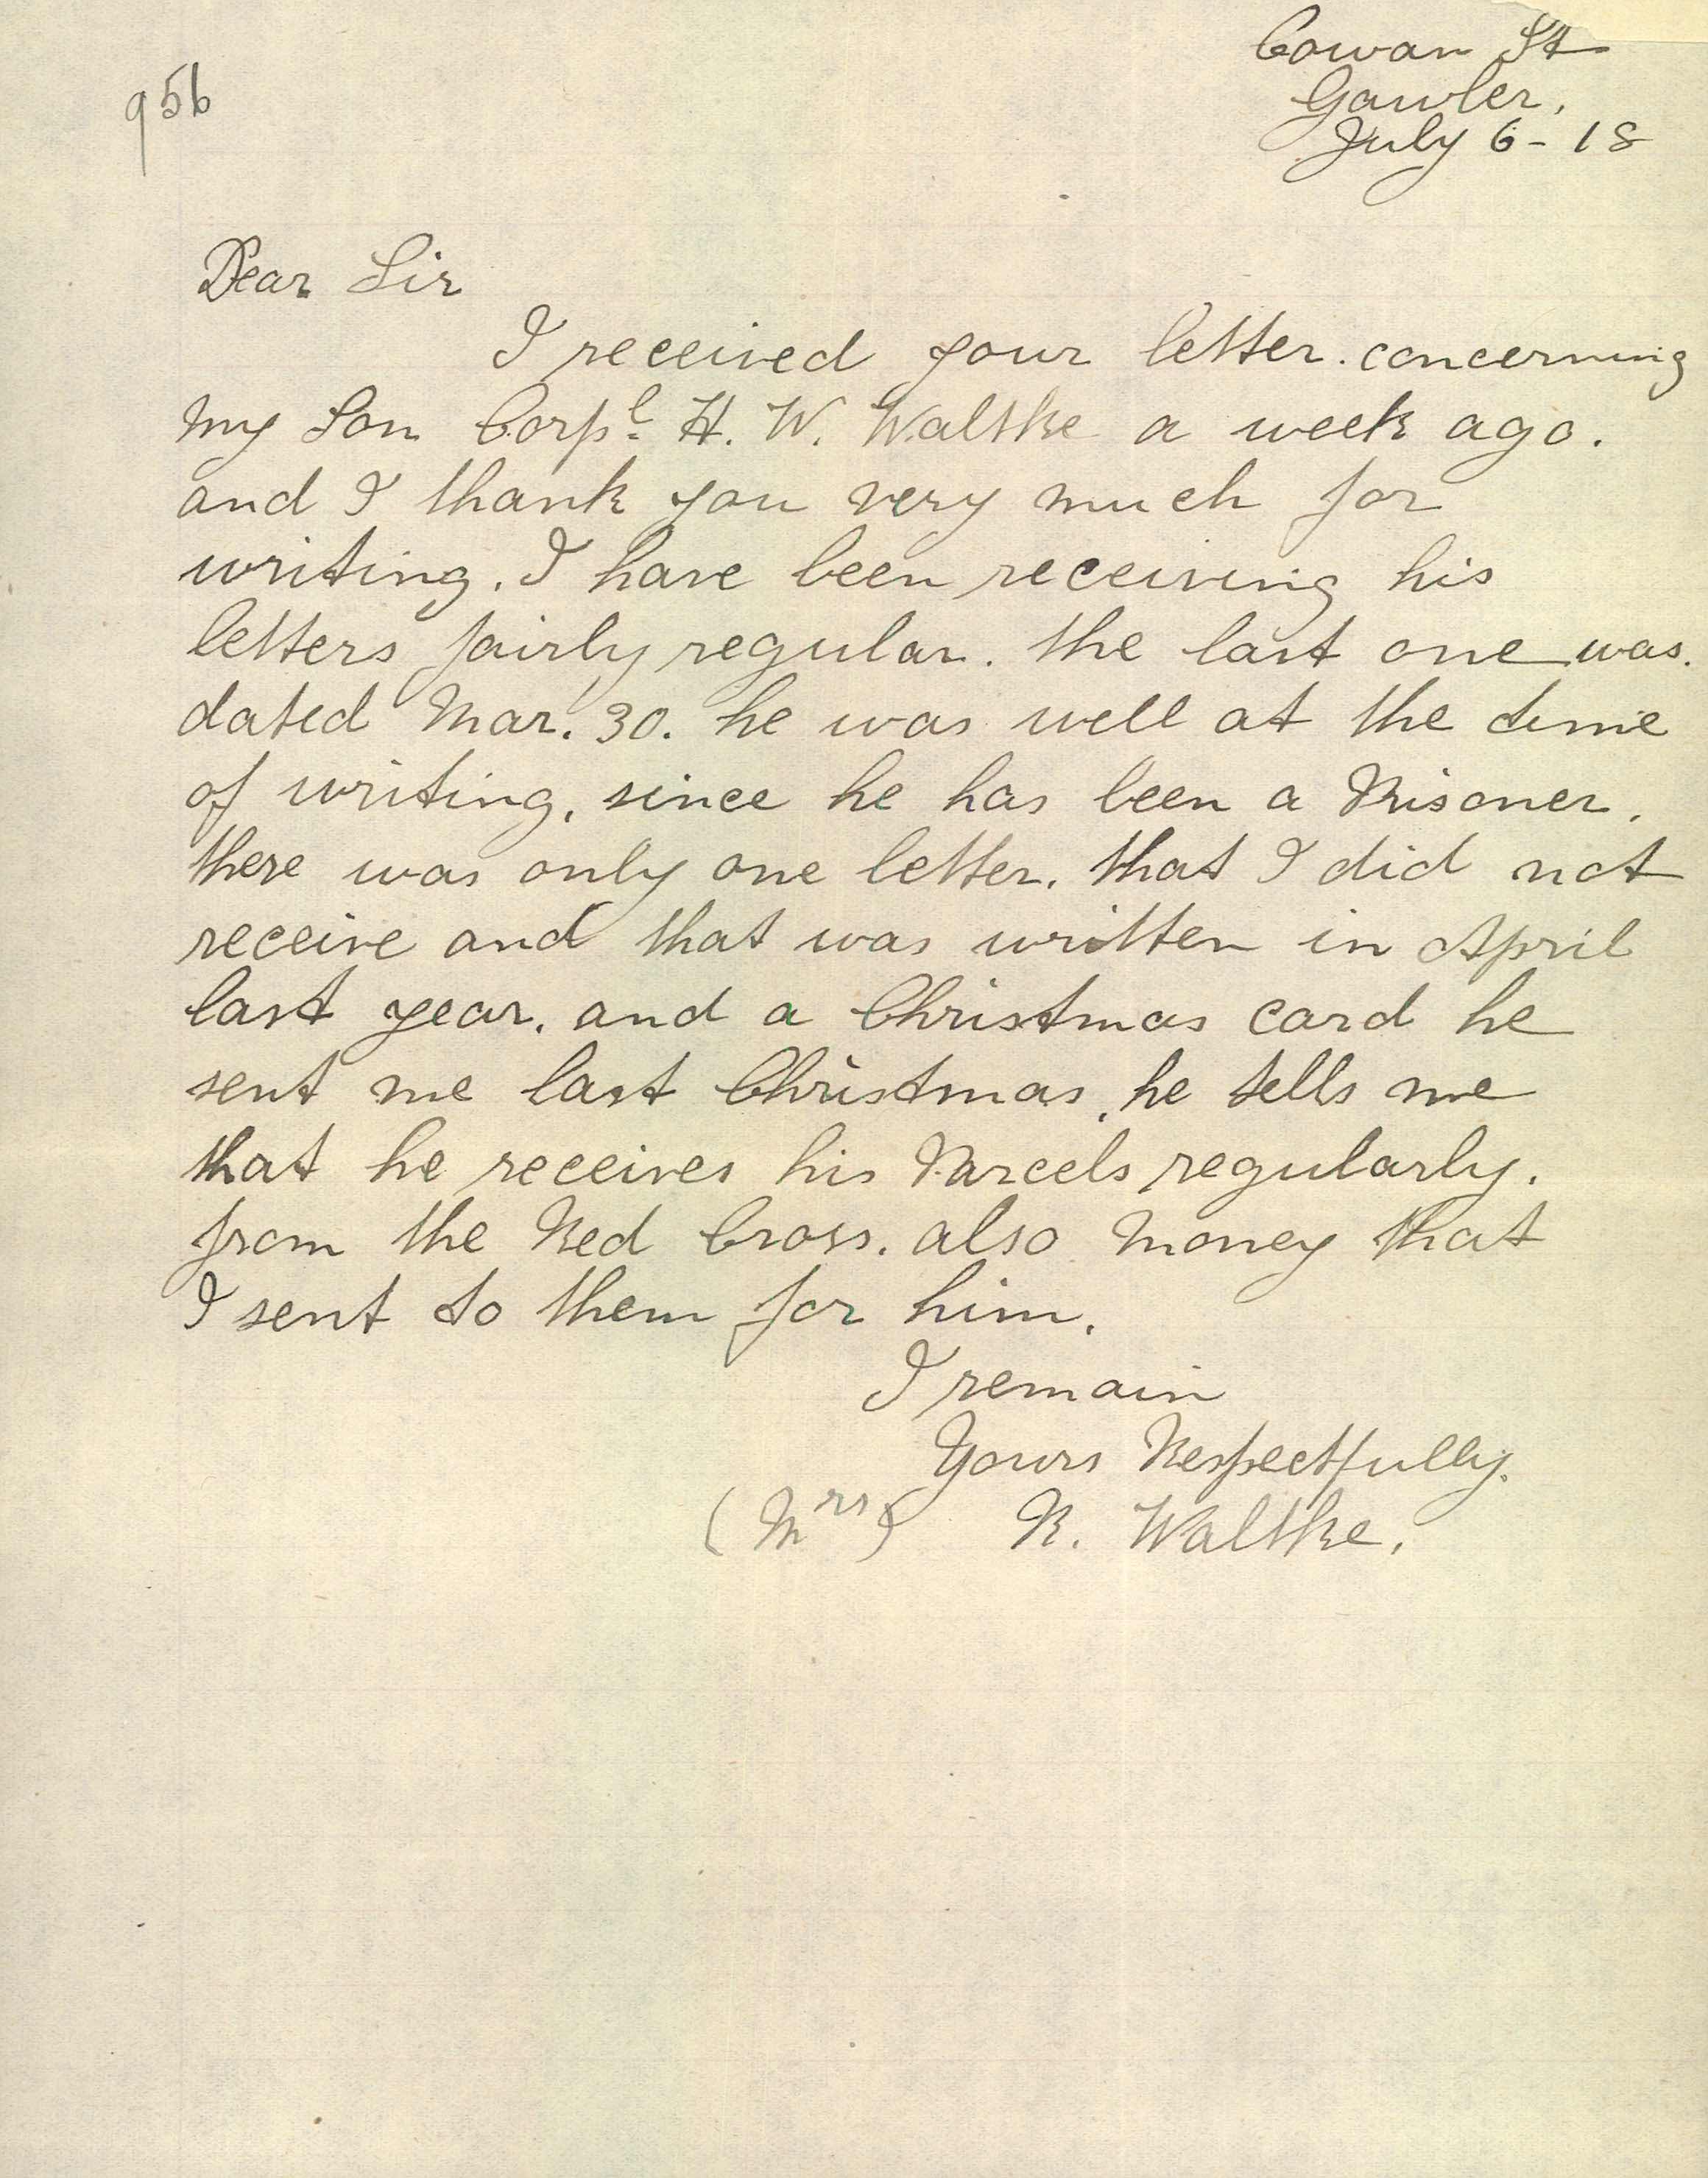 Cowan St
956
Gawler.
July 6 - 18
Dear Sir
I received your letter. concerning
my Son Corpl. H. W. Waltke a week ago.
and I thank you very much for
writing. I have been receiving his
letters fairly regular. the last one was.
dated Mar. 30. he was well at the time
of writing. since he has been a Prisoner.
there was only one letter. that I did not
receive and that was written in April
last year. and a Christmas card he
sent me last Christmas. he tells me
that he receives his Parcels regularly.
from the Red Cross. also money that
I sent to them for him.
I remain
Yours Respectfully.
(Mrs) R. Waltke.